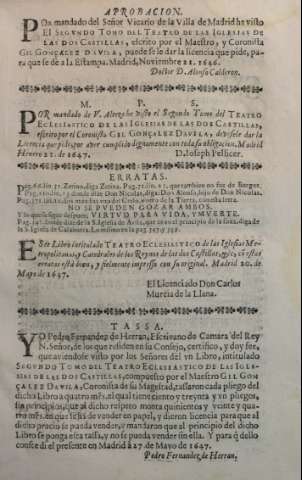 APROBACION.
POR mandado del Señor Vicario de la Villa de Madrid he visto
El SEGVNDO TOMO DEL TEATRO DE LAS IGLESIAS DE
LAS DOS CASTILLAS, escrito por el Maestro, y Coronista
GIL GONÇALEZ DAVILA, puedesele dar la licencia que pide, pa
ra que se dè a la Estampa. Madrid, Nouiembre 21. 1646.
Doctor D. Alonso Calderon.
M. P. S.
POR mandado de V. Alteza he visto el Segundo Tomo del TEATRO
ECLESIASTICO DE LAS IGLESIAS DE LAS DOS CASTILLAS,
escrito por el Coronista GIL GONÇALEZ DAVILA; deuesele dar la
Licencia que pide, por auer cumplido dignamente con toda su obligacion. Madrid
Henero 21. de 1647. D. Joseph Pellicer.
ERRATAS.
NO SE PVEDEN GOZAR AMBOS.
Y lo que se sigue despues; VIRTVD PARA VIDA, Y MVERTE.
ESte Libro intitulado TEATRO ECLESIASTICO de las Iglesias Me-
tropolitanas, y Catedrales de los Reynos de las dos Castillas, &c, cõ estas
erratas està bien, y fielmente impresso con su original. Madrid 20. de
Mayo de 1647.
El Licenciado Don Carlos
Murcia de la Llana.
TASSA.
YO Pedro Fernandez de Herran, Escriuano de Camara del Rey
N. Señor, de los que residen en su Consejo, certifico, y doy fee,
que auiendose visto por los Señores del vn Libro, intitulado
SEGVNDO TOMO DEL TEATRO ECLESIASTICO DE LAS IGLE-
SIAS DE LAS DOS CASTILLAS, compuesto por el Maestro GIL GON-
ÇALEZ DAVILA, Coronista de su Magestad, tassaron cada pliego del
dicho Libro a quatro mrs. el qual tiene ciento y treynta y vn pliegos,
sin principios, que al dicho respeto monta quinientos y veinte y qua-
tro mrs. en que se ha de vender en papel, y dieron licencia para que al
dicho precio se pueda vender, y mandaron que al principio del dicho
Libro se ponga esta tassa, y no se pueda vender sin ella. Y para q̃ dello
conste di el presente en Madrid à 27 de Mayo de 1647.
Pedro Fernandez de Herran.